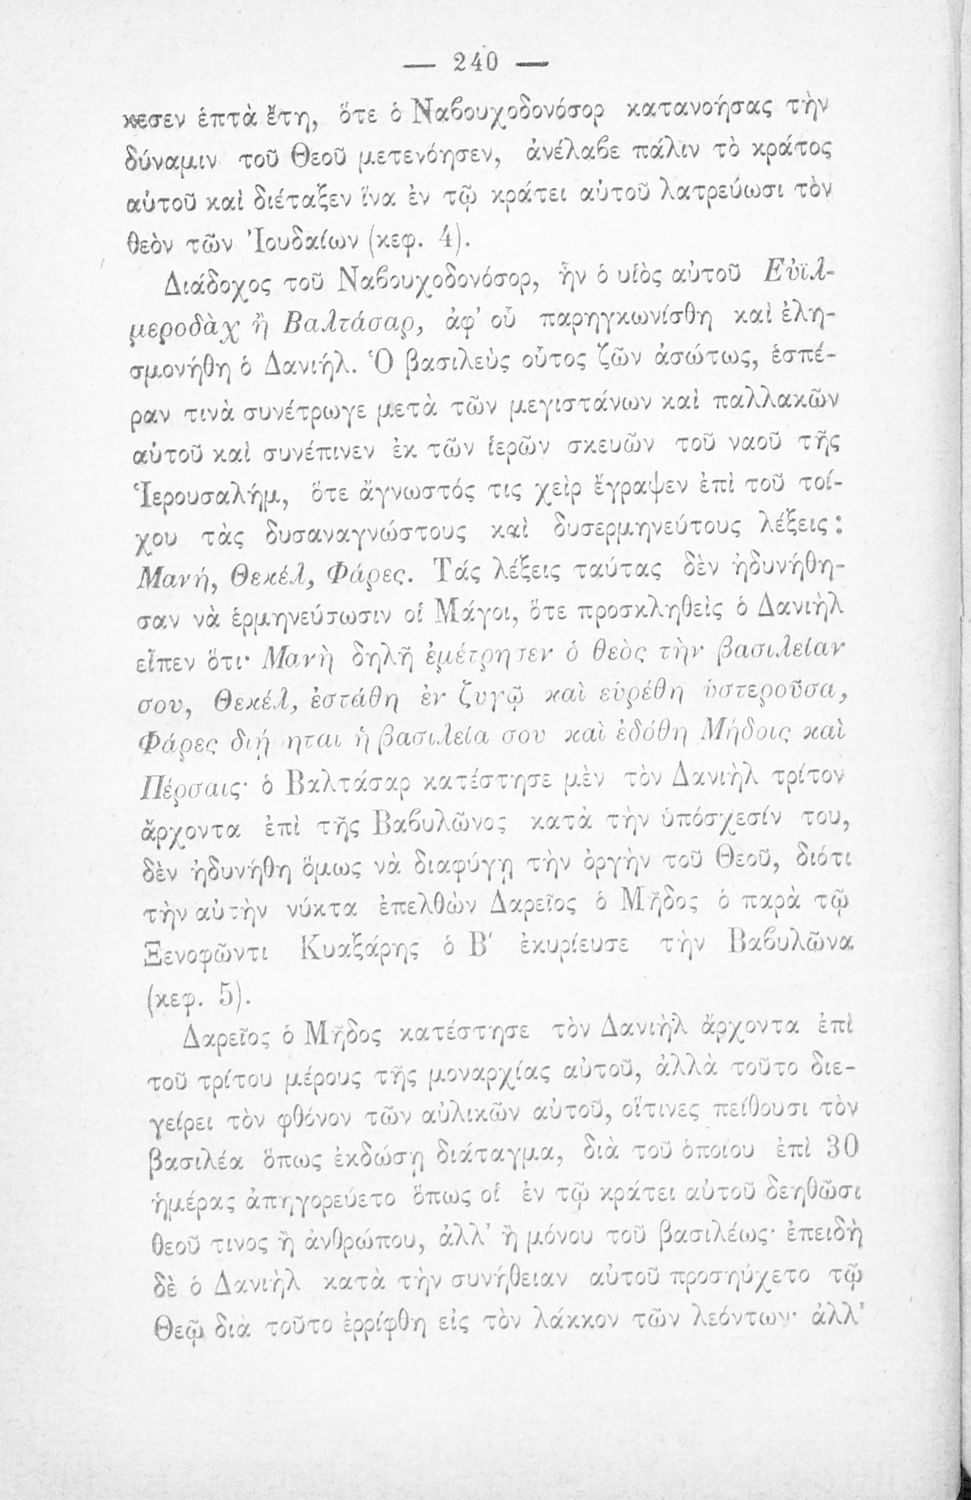 — 240 —
κεσεν ἑπτὰ ἔτη, ὅτε ὁ Ναβουχοδονόσορ κατανοήσας τὴν
δύναμιν τοῦ Θεοῦ μετενόησεν, ἀνέλαβε πάλιν τὸ κράτος
αὐτοῦ καὶ διέταξεν ἵνα ἐν τῷ κράτει αὐτοῦ λατρεύωσι τὸν
θεὸν τῶν Ἰουδαίων (κεφ. 4).
Διάδοχος τοῦ Ναβουχοδονόσορ, ἦν ὁ υἱὸς αὐτοῦ Εὐϊλ-
μεροδὰχ ἢ Βαλτάσαρ, ἀφ' οὗ παρηγκωνίσθη καὶ ἐλη-
σμονήθη ὁ Δανιήλ. Ὁ βασιλεὺς οὗτος ζῶν ἀσώτως, ἑσπέ-
ραν τινὰ συνέτρωγε μετὰ τῶν μεγιστάνων καὶ παλλακῶν
αὐτοῦ καὶ συνέπινεν ἐκ τῶν ἱερῶν σκευῶν τοῦ ναοῦ τῆς
Ἱερουσαλήμ, ὅτε ἄγνωστός τις χεὶρ ἔγραψεν ἐπὶ τοῦ τοί-
χου τὰς δυσαναγνώστους καὶ δυσερμηνεύτους λέξεις:
Μανή, Θεκέλ, Φάρες. Τάς λέξεις ταύτας δὲν ἠδυνήθη-
σαν νὰ ἑρμηνεύσωσιν οἱ Μάγοι, ὅτε προσκληθεὶς ὁ Δανιὴλ
εἶπεν ὅτι· Μανὴ δηλῆ ἐμέτρησεν ὁ θεὸς τὴν βασιλείαν
σου, Θεκέλ, ἐστάθη ἐν ζυγῷ καὶ εὑρέθη ὑστεροῦσα,
Φάρες διῄρηται ἡ βασιλεία σου καὶ ἐδόθη Μήδοις καὶ
Πέρσαις· ὁ Βαλτάσαρ κατέστησε μὲν τὸν Δανιὴλ τρίτον
ἄρχοντα ἐπὶ τῆς Βαβυλῶνος κατὰ τὴν ὑπόσχεσίν του,
δὲν ἠδυνήθη ὅμως νὰ διαφύγῃ τὴν ὀργὴν τοῦ Θεοῦ, διότι
τὴν αὐτὴν νύκτα ἐπελθὼν Δαρεῖος ὁ Μῆδος ὁ παρὰ τῷ
Ξενοφῶντι Κυαξάρης ὁ Β' ἐκυρίευσε τὴν Βαβυλῶνα
(κεφ. 5).
Δαρεῖος ὁ Μῆδος κατέστησε τὸν Δανιὴλ ἄρχοντα ἐπὶ
τοῦ τρίτου μέρους τῆς μοναρχίας αὐτοῦ, ἀλλὰ τοῦτο διε-
γείρει τὸν φθόνον τῶν αὐλικῶν αὐτοῦ, οἵτινες πείθουσι τὸν
βασιλέα ὅπως ἐκδώσῃ διάταγμα, διὰ τοῦ ὁποίου ἐπὶ 30
ἡμέρας ἀπηγορεύετο ὅπως οἱ ἐν τῷ κράτει αὐτοῦ δεηθῶσι
θεοῦ τινος ἢ ἀνθρώπου, ἀλλ' ἢ μόνου τοῦ βασιλέως· ἐπειδὴ
δὲ ὁ Δανιὴλ κατὰ τὴν συνήθειαν αὐτοῦ προσηύχετο τῷ
Θεῷ διὰ τοῦτο ἐρρίφθη εἰς τὸν λάκκον τῶν λεόντων· ἀλλ'